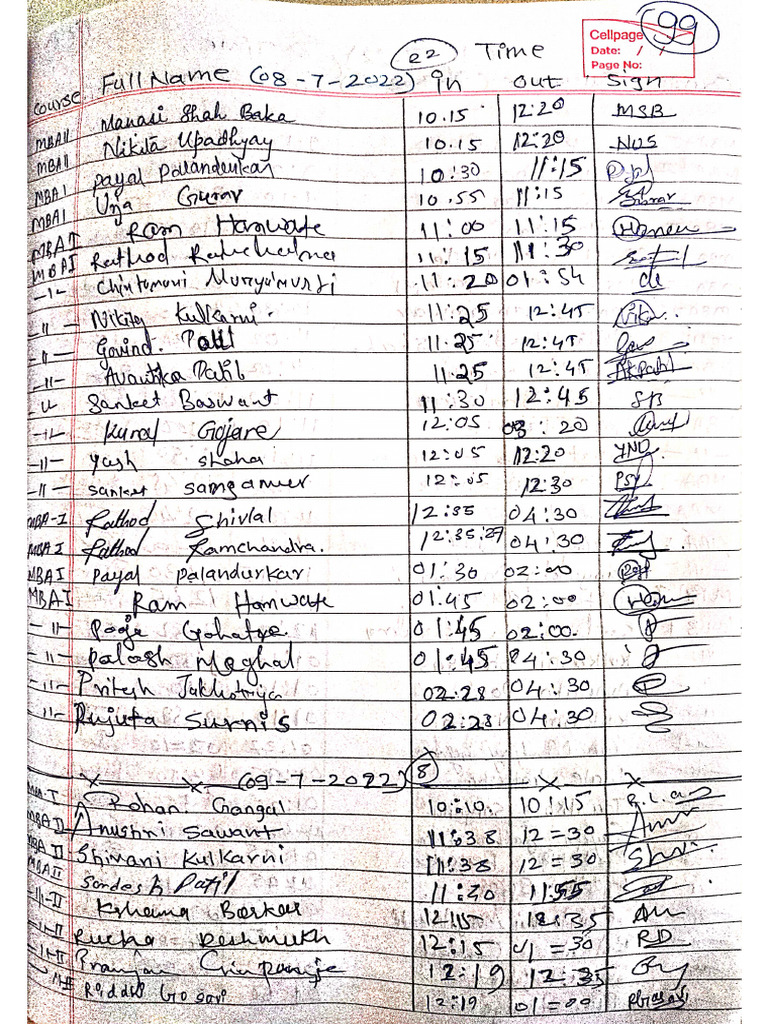 99
Cellpage
Date: / /
Page No:
22 Time
Course Full Name (08-7-2022) in out Sign
MBA II Manasi Shah Baka 10.15 12:20 MSB
MBA II Nikita Upadhyay 10.15 12:20 NUS
MBA I Payal Palandurkar 10:30 11:15
MBA I Urja Gurav 10.55 11:15
MBA I Ram Hamwate 11:00 11:15
MBA I Rathod 11:15 11:30
-11- Chintamani 11:20 01:54
-11- Nikita Kulkarni. 11:25 12:45
-11- Govind. Patil 11.25 12:45
-11- Avantika Patil 11:25 12:45 AkPatil
-11- Sanket Baswant 11:30 12:45 SB
-11- Kunal Gojare 12:05 03:20
-11- Yash Shaha 12:05 12:20
-11- Sanket Samgamner 12:05 12:30
MBA-I Rathod Shivlal 12:35 04:30
MBA I Rathod Ramchandra. 12:35:27 04:30
MBA I Payal Palandurkar 01:30 02:00
MBA I Ram Hamwate 01:45 02:00
-11- Pooja 01:45 02:00.
-11- Palash Meghal 01:45 04:30
-11- Pritesh Jakhotiya 02:28 04:30
-11- Rujuta Surnis 02:28 04:30
x x (09-7-2022) 8 x x
Rohan. Gangal 10:10. 10:15
MBA II Anushri Sawant 11:38 12=30
MBA II Shivani Kulkarni 11:38 12=30
MBA II Sandesh Patil 11:40 11:55
-11-II Kshama Barkar 12:15 12:35
-11-II Rucha Deshmukh 12:15 01=30 RD
-11-II Pranjan 12:19 12:35
-11-II Riddhi Gosavi 12:19 01=00